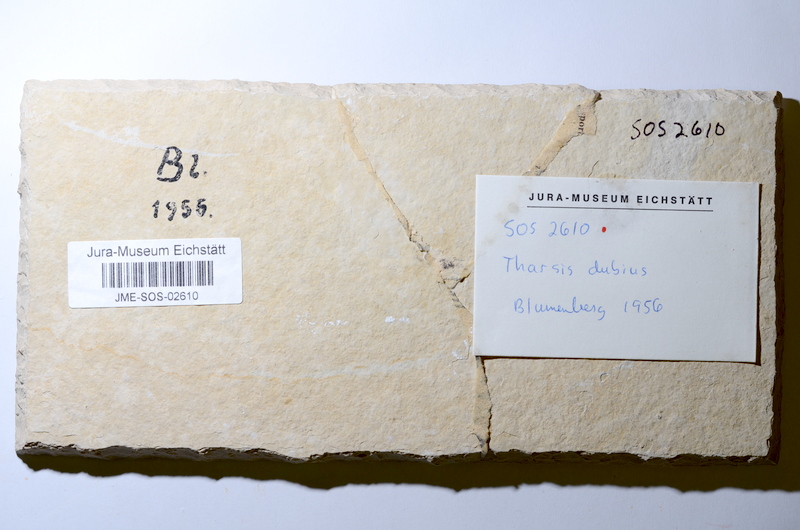 Bl.
1956.
Jura-Museum Eichstätt
JME-SOS-02610
port
SOS 2610
JURA-MUSEUM EICHSTÄTT
SOS 2610
Tharsis dubius
Blumenberg 1956